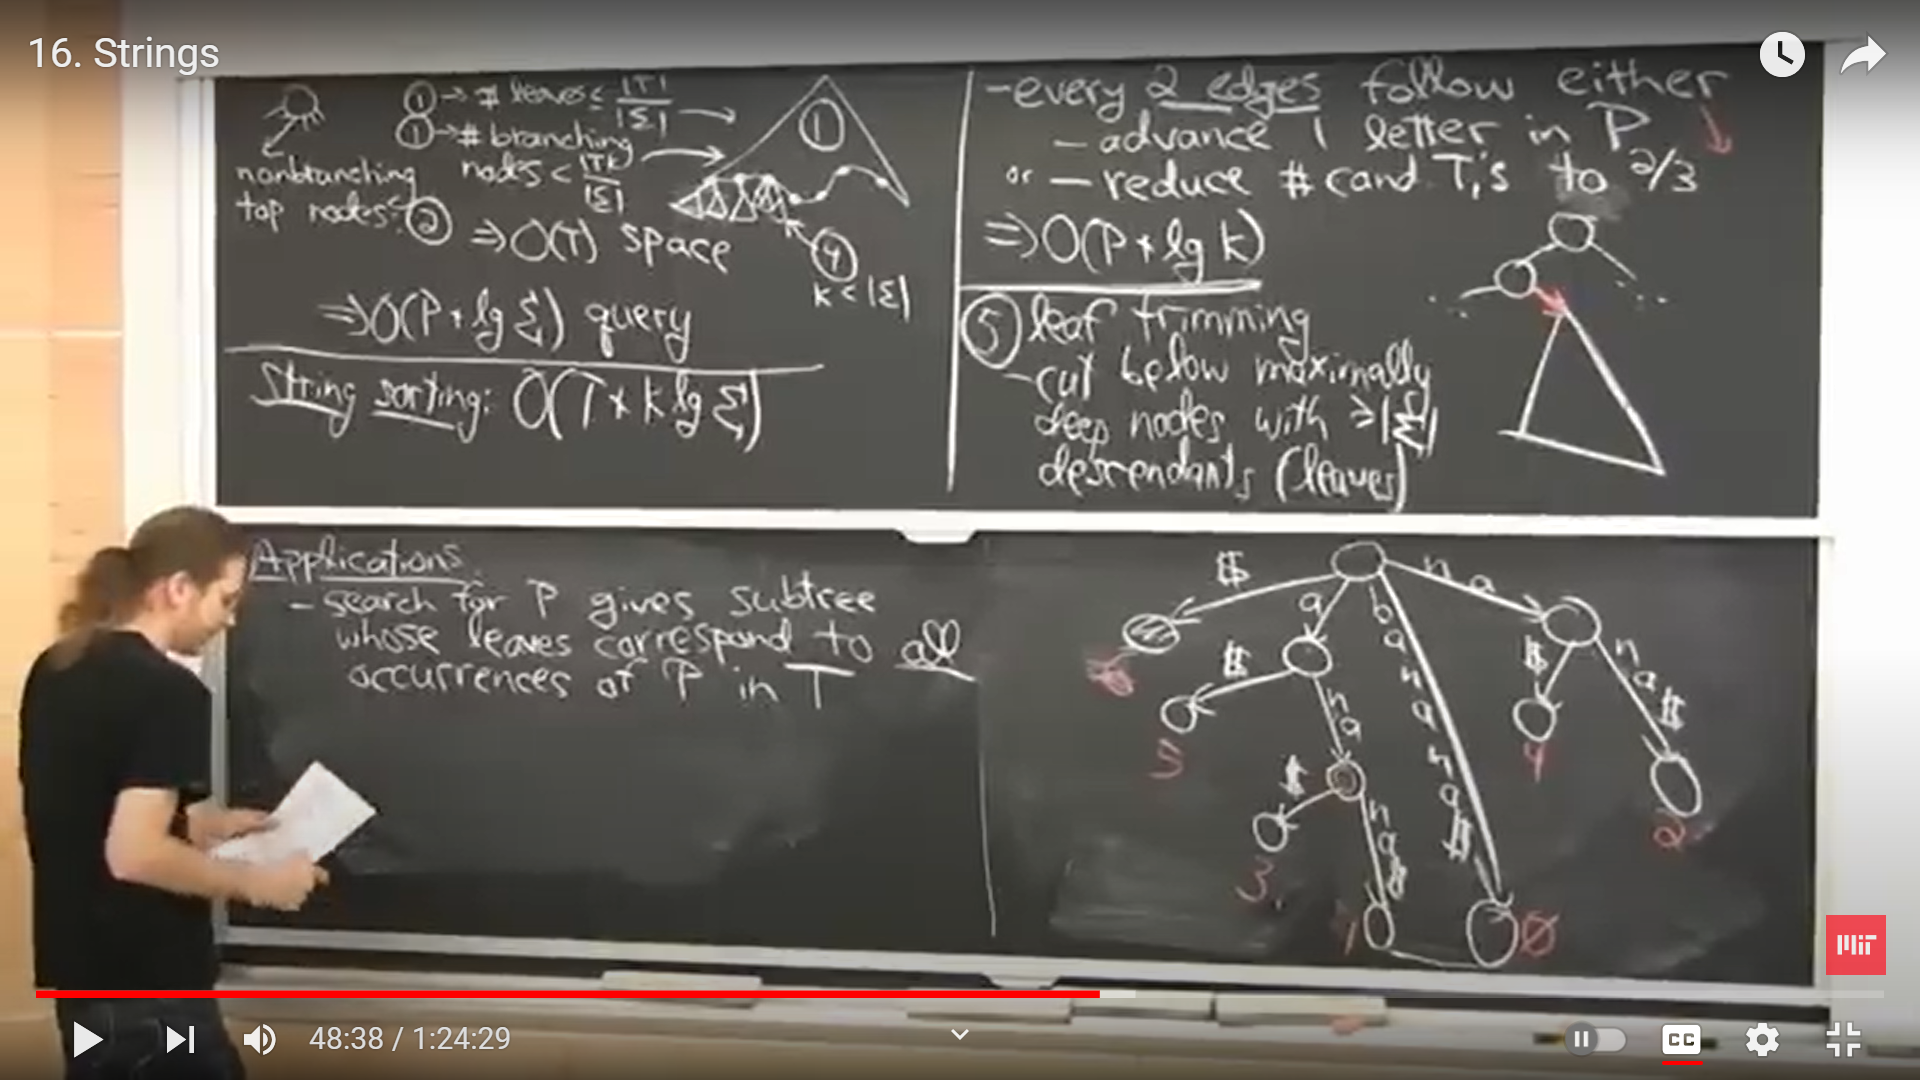 16. Strings
① → # leaves ≤ |T|/|Σ|
① → # branching
nodes < |T|/|Σ|
nonbranching
top nodes: ②
⇒ O(T) space
①
④
k < |Σ|
⇒ O(P + lg Σ) query
String sorting: O(T + k lg Σ)
- every 2 edges follow either
- advance 1 letter in P
or - reduce # cand. Tᵢ's to 2/3
⇒ O(P + lg k)
⑤ leaf trimming
- cut below maximally
deep nodes with ≥ |Σ|
descendants (leaves)
Applications
- search for P gives subtree
whose leaves correspond to all
occurrences of P in T
$
a
banana$
na
6
$
5
na
$
4
na$
2
$
3
na$
1
Ø
MIT
48:38 / 1:24:29
CC